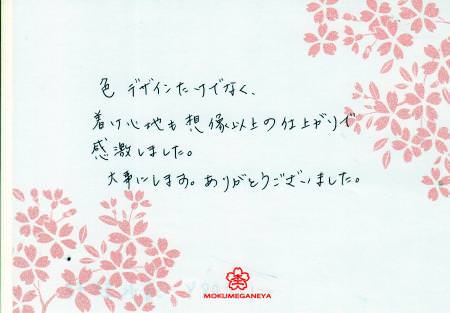 色 デザインだけでなく、
着け心地も想像以上の仕上がりで
感激しました。
大事にします。ありがとうございました。
MOKUMEGANEYA